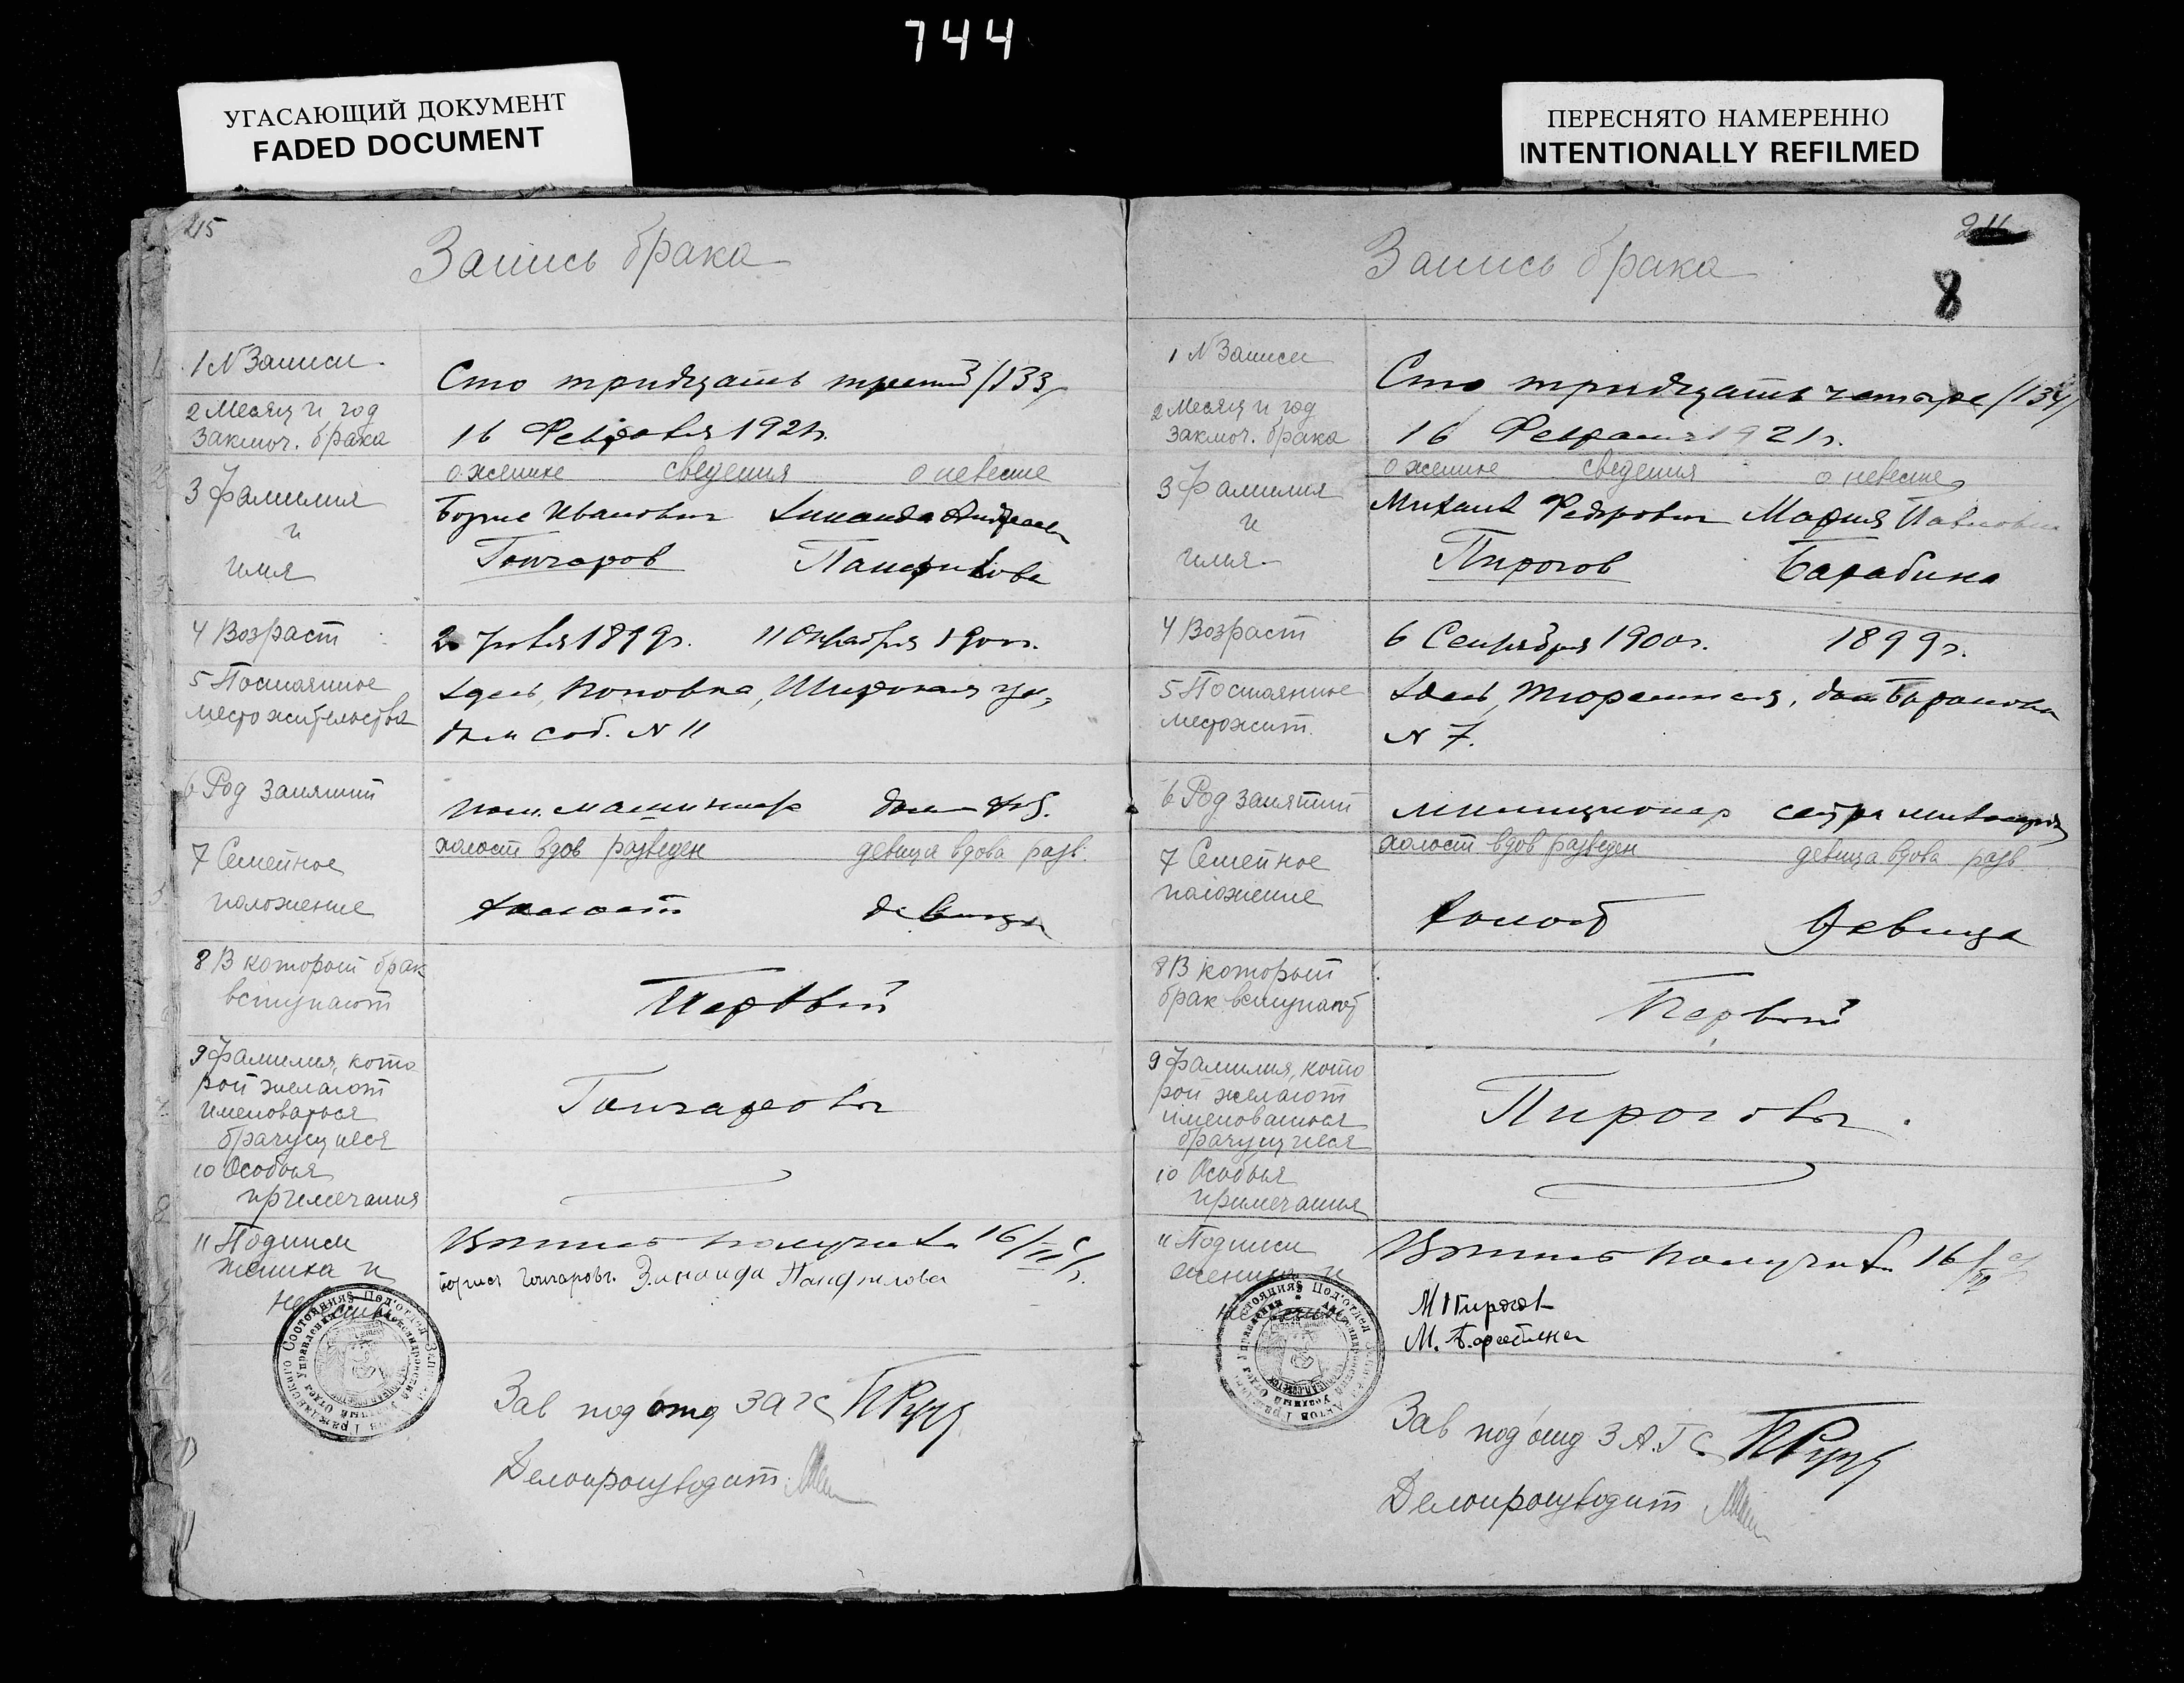 744
УГАСАЮЩИЙ ДОКУМЕНТ
FADED DOCUMENT
ПЕРЕСНЯТО НАМЕРЕННО
INTENTIONALLY REFILMED
215
Запись брака
1 N Записи
Сто тридцать третий /133/
2 Месяц и год
заключ. брака
16 Февраля 1921г.
о женихе сведения о невесте
3 Фамилия
и
имя
Борис Иванович Зинаида Андреевн
Гончаров Панфилова
4 Возраст
1899г. 11 Октября 1900г.
5 Постоянное
место жительства
Здесь, Поповка, Широкая ул,
дом соб. N 11
6 Род занятий
пом. машиниста дом. раб.
7 Семейное
положение
холост вдов разведен девица вдова разв.
холост девица
8 В который брак
вступают
Первый
9 Фамилия, кото
рой желают
именоваться
брачущиеся
Гончаровы
10 Особыя
примечания
11 Подписи
жениха и
невесты
Выпись получила 16/II
Борис Гончаровъ. Зинаида Панфилова
Зав под'отд ЗАГС
Делопроизводит.
211
8
Запись брака
1 N Записи
Сто тридцать четыре /134/
2 Месяц и год
заключ. брака
16 Февраля 1921г.
о женихе сведения о невесте
3 Фамилия
и
имя
Михаил Федорович Мария Павловна
Пирогов Барабина
4 Возраст
6 Сентября 1900г. 1899г.
5 Постоянное
местожит.
Здесь, Тюремная, дом Баранова
N 7.
6 Род занятий
милиционер сестра милосердия
7 Семейное
положение
холост вдов разведен девица вдова разв
холост девица
8 В который
брак вступают
Первый
9 Фамилия, кото
рой желают
именоваться
брачущиеся
Пироговы.
10 Особыя
примечания
11 Подписи
жениха и
невесты
Выпись получил 16/II
М Пирогов
М. Барабина
Зав под'отд З.А.Г.С
Делопроизводит